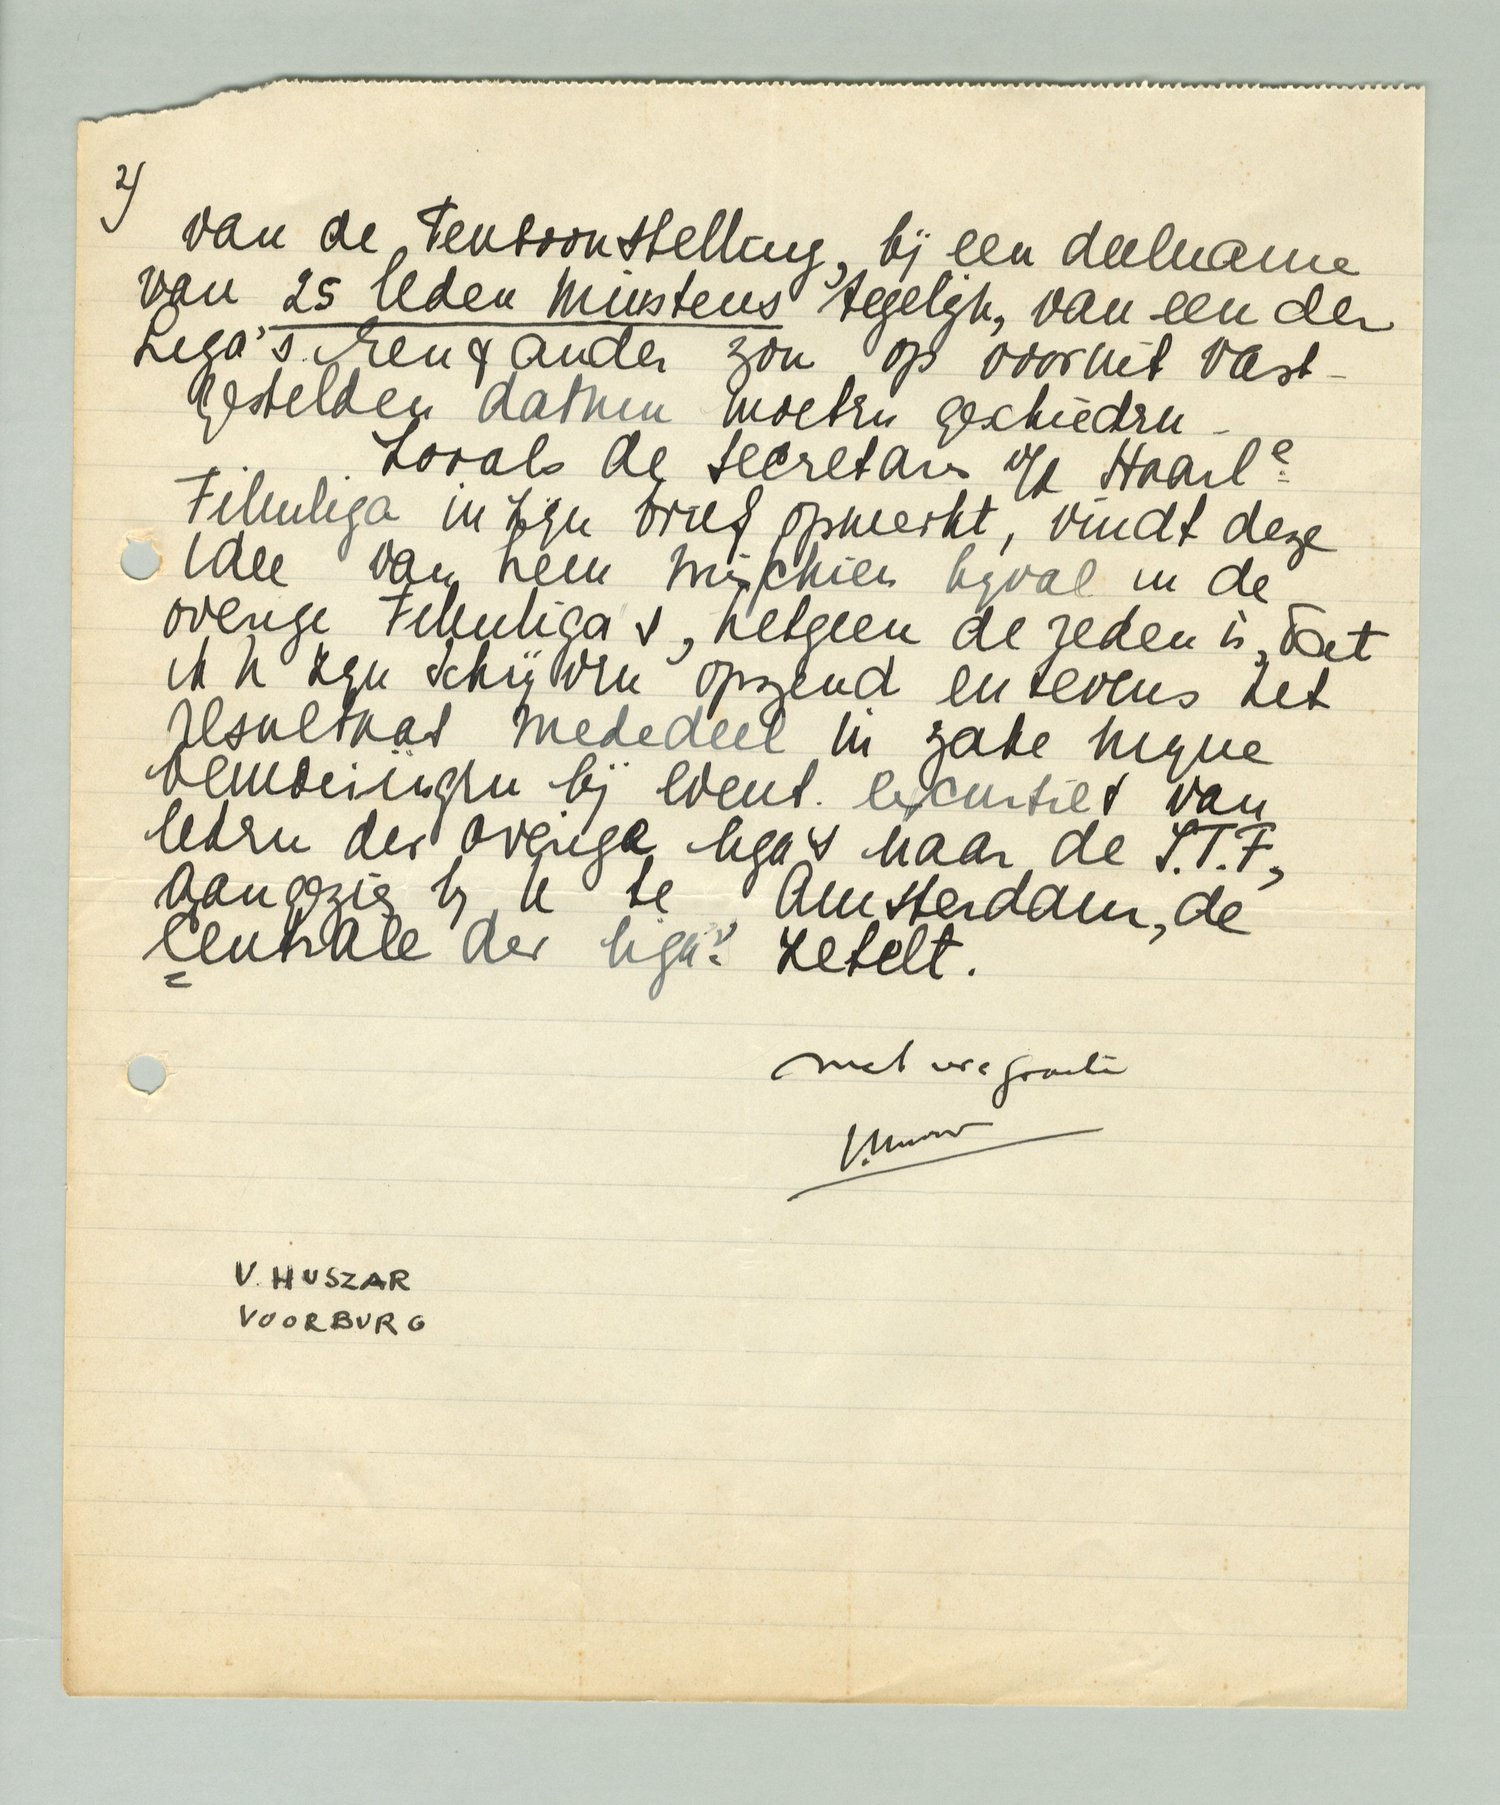 2)
van de Tentoonstelling, bij een deelname
van 25 leden minstens tegelijk, van een der
Liga's. Een & ander zou op vooruit vast-
gestelden datum moeten geschieden -
Zooals de secretaris v/d Haarl e
Filmliga in zijn brief opmerkt, vindt deze
idee van hem misschien bijval in de
overige Filmliga's, hetgeen de reden is, dat
ik U zijn schrijven opzend en tevens het
resultaat mededeel in zake mijne
bemoeiingen bij event. excursies van
leden der overige liga's naar de I.T.F,
aangezien bij U te Amsterdam, de
Centrale der liga's zetelt.
met vr. groeten
V. HUSZAR
VOORBURG